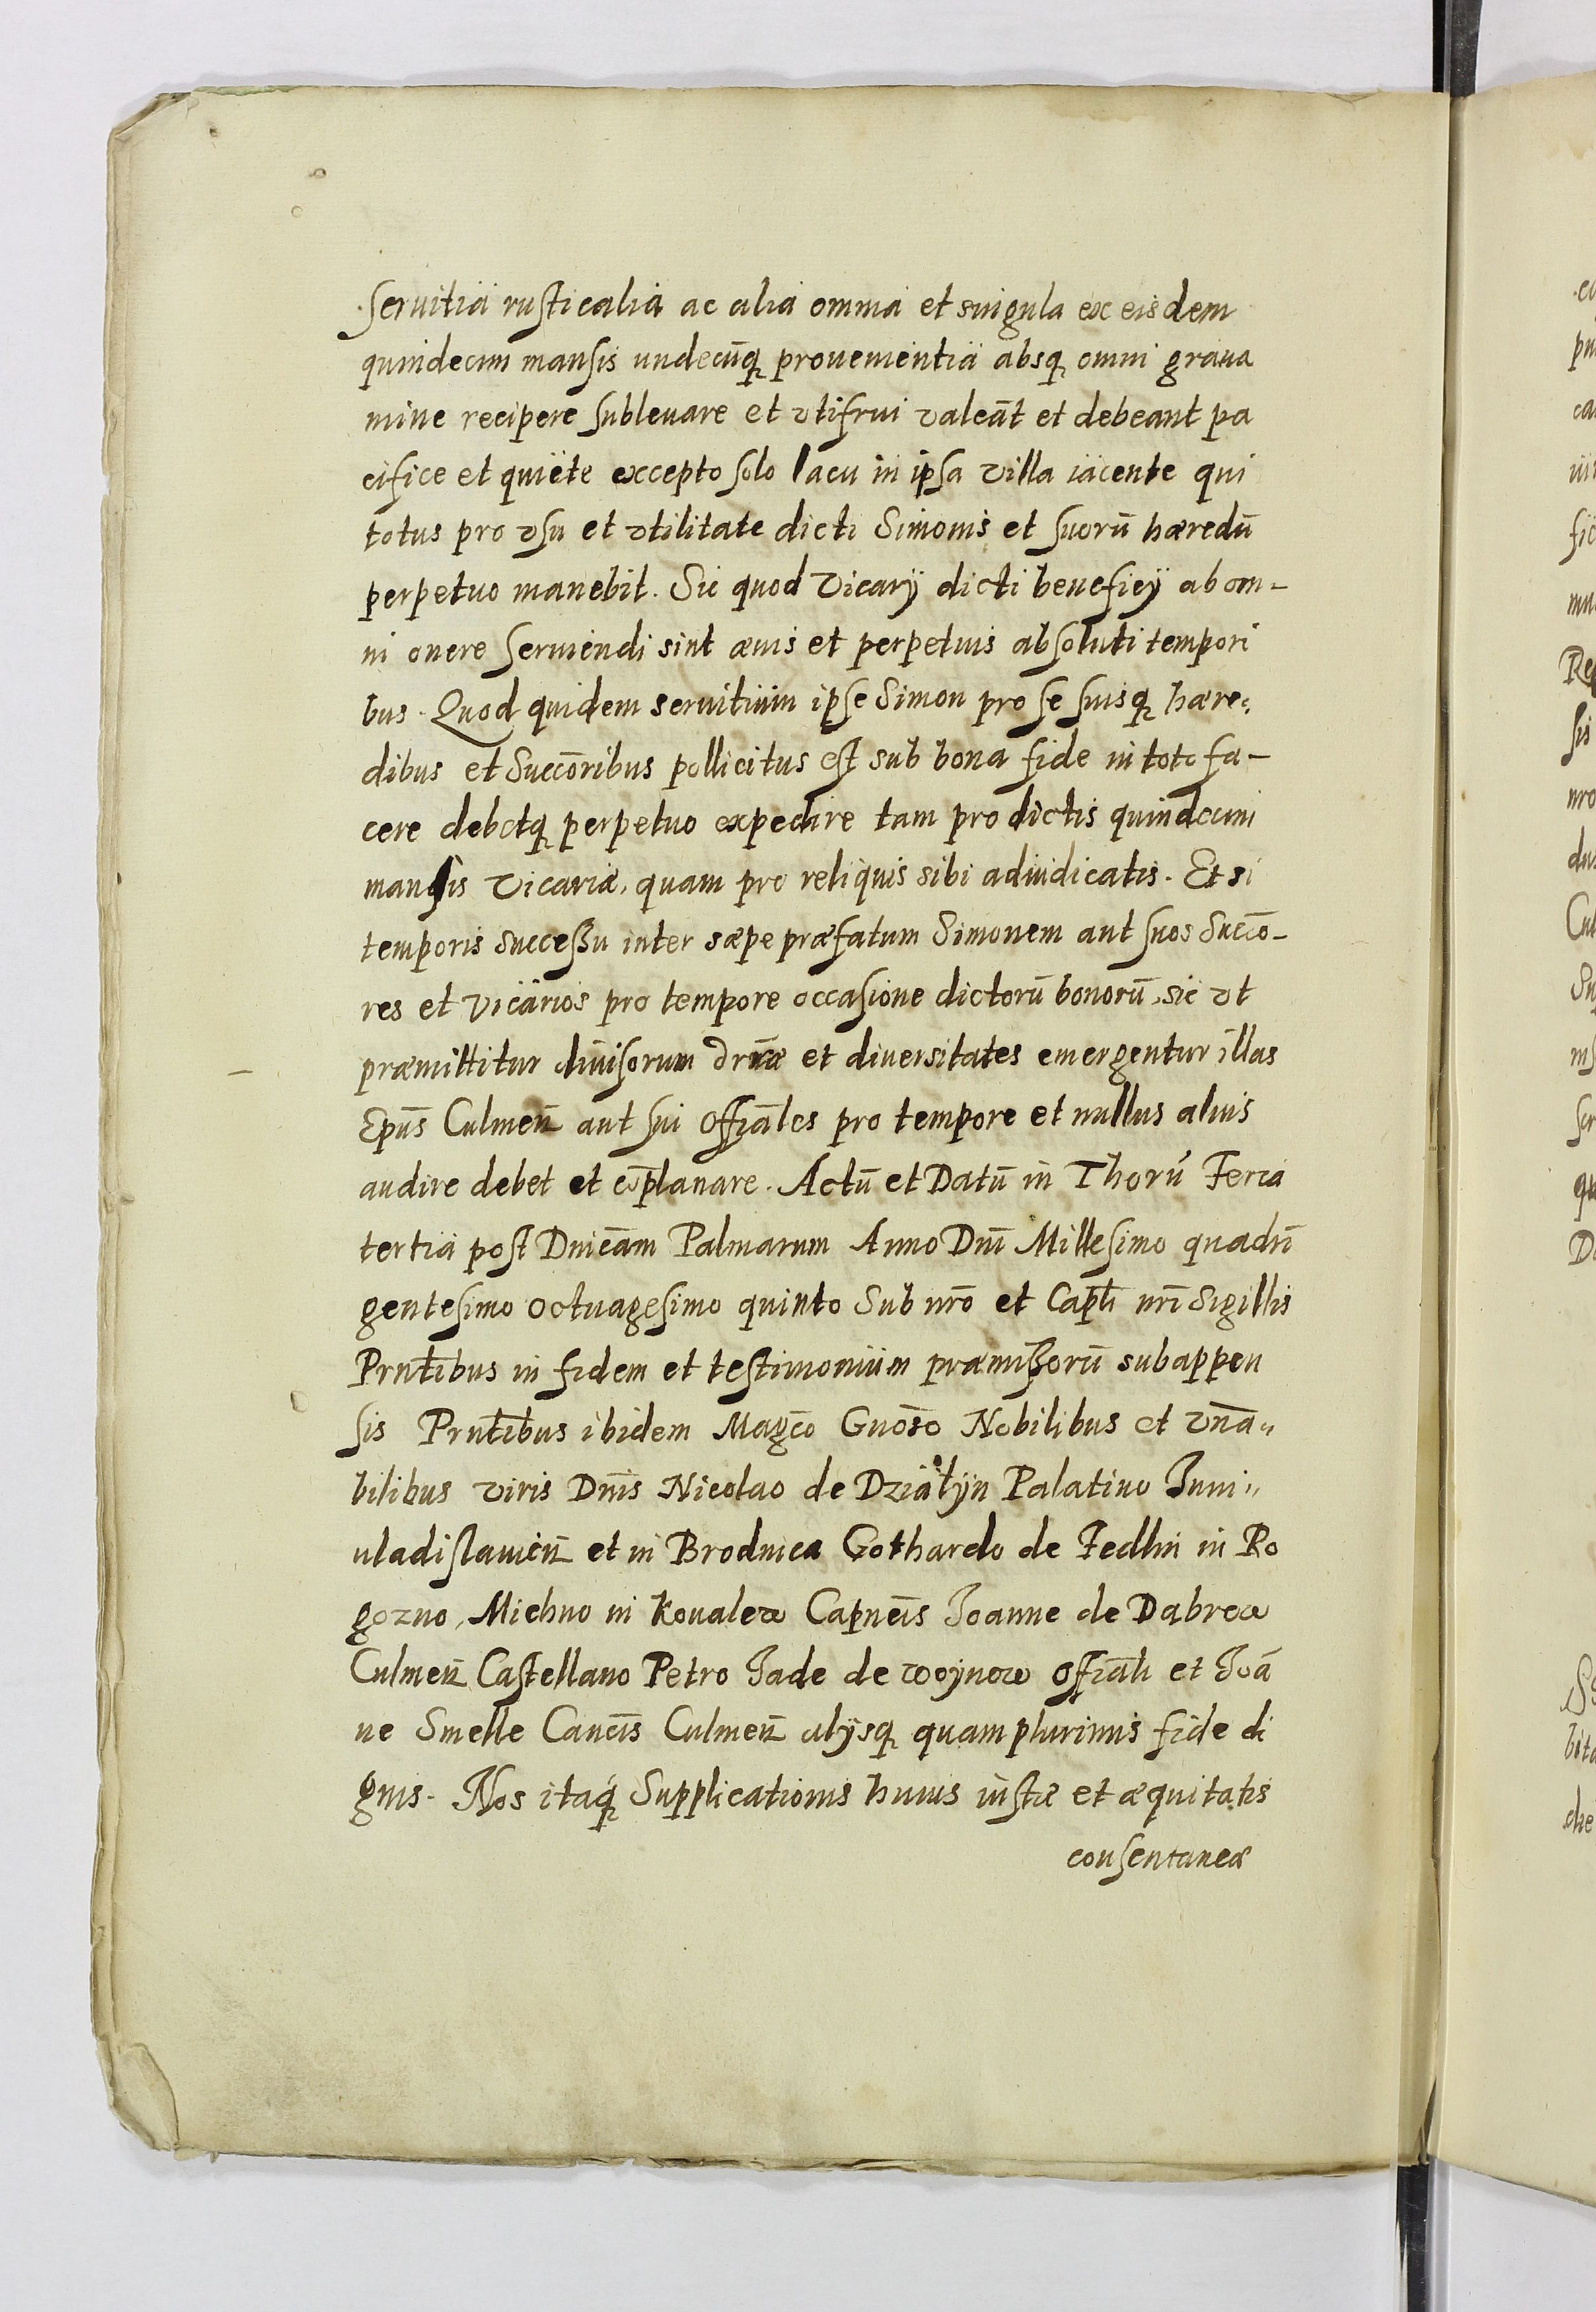 seruitia rusticalia ac alia omnia et singula ex eisdem
quindecim mansis undecūq; prouenientia absq; omni graua
mine recipere subleuare et vtifrui valeāt et debeant pa
cifice et quiete excepto solo lacu in ipsa villa iacente qui
totus pro vsu et vtilitate dicti Simonis et suorū hæredū
perpetuo manebit. Sic quod Vicarÿ dicti beneficÿ ab om-
ni onere seruiendi sint æuis et perpetuis absoluti tempori
bus. Quod quidem seruitium ipse Simon pro se suisq; hære-
dibus et Succōribus pollicitus est sub bona fide in toto fa-
cere debetq; perpetuo expedire tam pro dictis quindecim
mansis Vicariæ, quam pro reliquis sibi adiudicatis. Et si
temporis successu inter sæpe præfatum Simonem aut suos Succō-
res et Vicarios pro tempore occasione dictorū bonorū, sic vt
præmittitur diuisorum dr̄næ et diuersitates emergentur illas
Ep̄us Culmen̄ aut sui Offiāles pro tempore et nullus aliuis
audire debet et cōplanare. Actū et Datū in Thorū Feria
tertia post Dnicām Palmarum Anno Dn̄i Millesimo quadri
gentesimo octuagesimo quinto Sub nr̄o et Capl̄i nr̄i Sigillis
Prn̄tibus in fidem et testimonium præmissorū subappen
sis Prn̄tibus ibidem Magc̄o Gnōso Nobilibus et Vn̄a„
bilibus viris Dn̄is Nicolao de Działÿn Palatino Juni„
uladislauien̄ et in Brodnica Gothardo de Fedlin in Ro
gozno, Michno in Koualew Capneīs Joanne de Dabrow
Culmen̄ Castellano Petro Jade de Woÿnow Offiāli et Joā
ne Smelle Canc̄is Culmen̄ alÿsq; quam plurimis fide di
gnis. Nos itaq; Supplicationis huius iustæ et æquitatis
consentaneæ